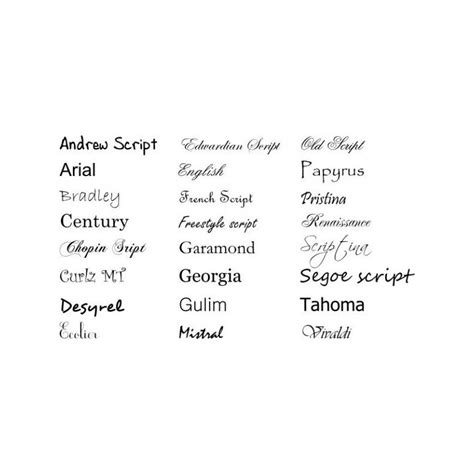 Andrew Script
Edwardian Script
Old Script
Arial
English
Papyrus
Bradley
French Script
Pristina
Century
Freestyle script
Renaissance
Chopin Sript
Garamond
Scriptina
Curlz MT
Georgia
Segoe script
Desyrel
Gulim
Tahoma
Ecolier
Mistral
Vivaldi